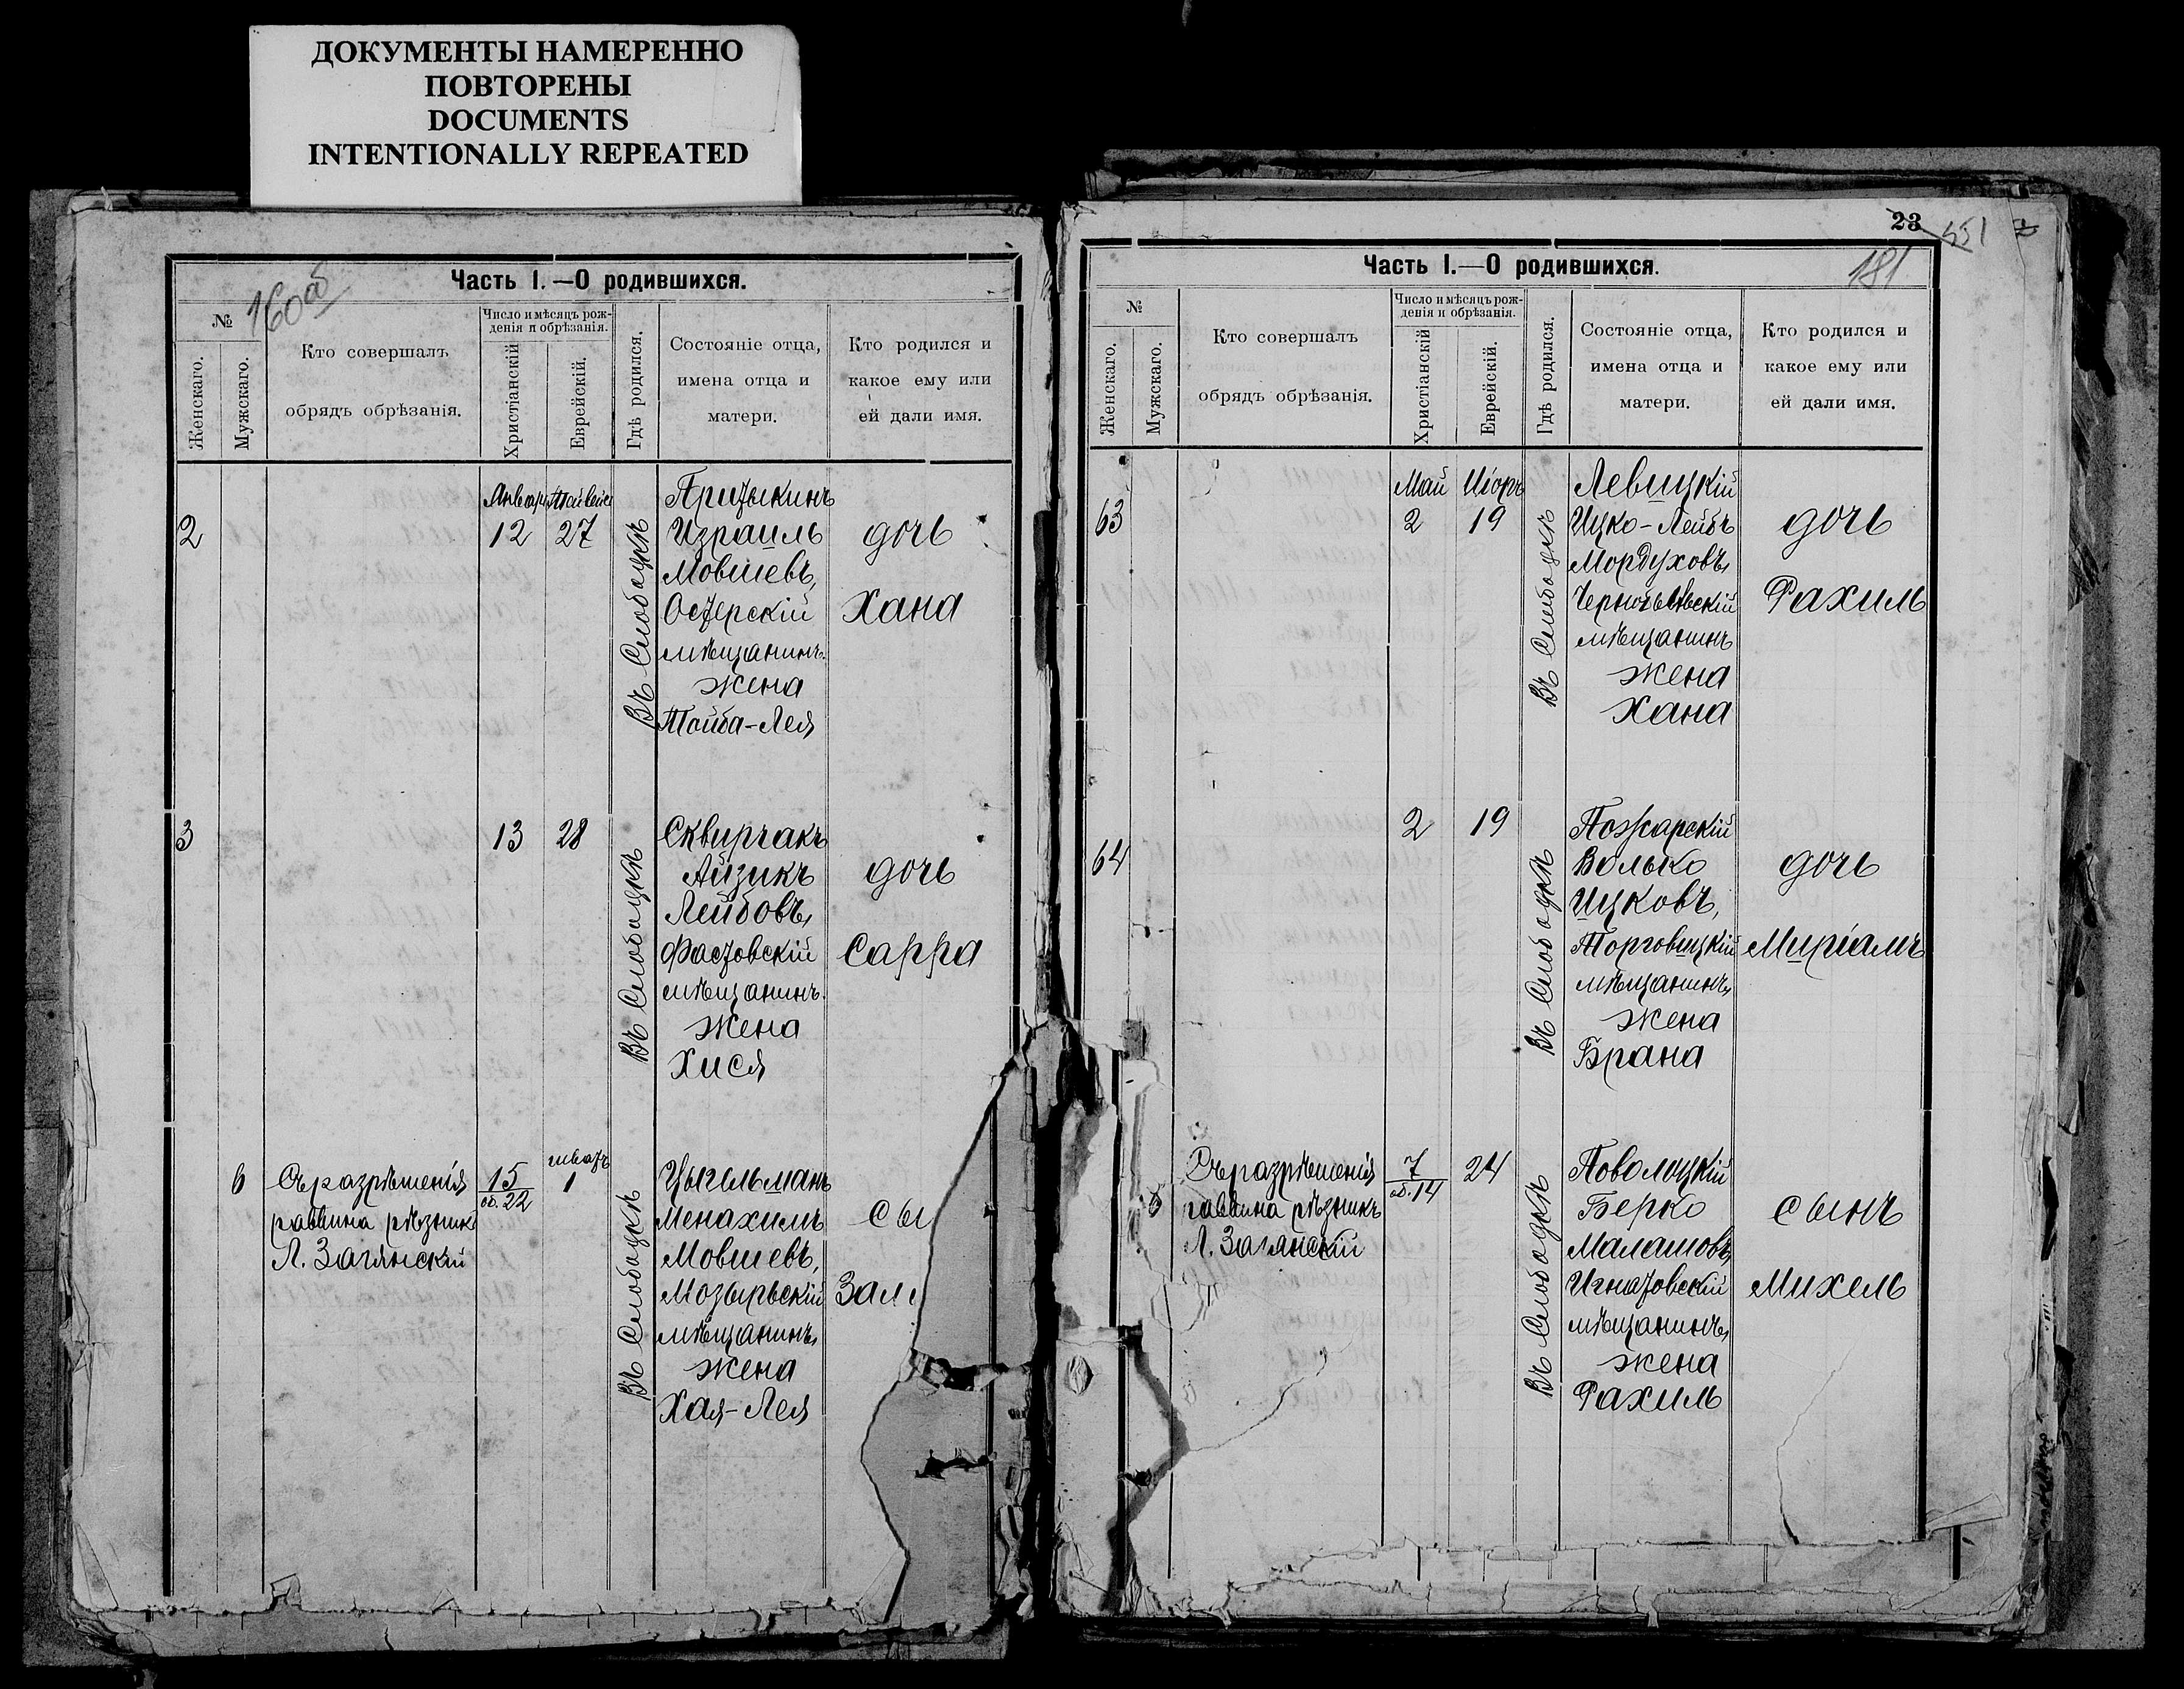 ДОКУМЕНТЫ НАМЕРЕННО
ПОВТОРЕНЫ
DOCUMENTS
INTENTIONALLY REPEATED
160об
Часть I.—О родившихся.
№
Женскаго.
Мужскаго.
Кто совершалъ
обрядъ обрѣзанія.
Число и мѣсяцъ рож-
денія и обрѣзанія.
Христіанскій
Еврейскій.
Гдѣ родился.
Состояніе отца,
имена отца и
матери.
Кто родился и
какое ему или
ей дали имя.
2
Январ
12
27
Въ Слободкѣ
Притыкинъ
Израиль
Мовшевъ,
Остерскій
мѣщанинъ.
жена
Тойба-Лея
дочь
Хана
3
13
28
Въ Слободкѣ
Сквирчакъ
Айзикъ
Лейбовъ,
Фастовскій
мѣщанинъ.
жена
Хися
дочь
Сарра
6
Съ разрѣшенія
раввина рѣзникъ
Л. Загянскій
15
об. 22
шватъ
1
Въ Слободкѣ
Цыгельманъ
Менахимъ
Мовшевъ,
Мозырьскій
мѣщанинъ,
жена
Хая-Лея
сы
Зал
23
551
181
Часть I.—О родившихся.
№
Женскаго.
Мужскаго.
Кто совершалъ
обрядъ обрѣзанія.
Число и мѣсяцъ рож-
денія и обрѣзанія.
Христіанскій
Еврейскій.
Гдѣ родился.
Состояніе отца,
имена отца и
матери.
Кто родился и
какое ему или
ей дали имя.
63
Май
2
Ыіоръ
19
Въ Слободкѣ
Левицкій
Ицко-Лейбъ
Мордуховъ,
мѣщанинъ
жена
Хана
дочь
Рахиль
64
2
19
Въ Слободкѣ
Пожарскій
Волько
Ицковъ,
Торговицкій
мѣщанинъ,
жена
Брана
дочь
Миріамъ
Съ разрѣшенія
раввина рѣзникъ
Л. Загянскій
7
об. 14
24
Въ Слободкѣ
Поволоцкій
Берко
Малашовъ,
Игнатовскій
мѣщанинъ,
жена
Рахиль
сынъ
Михель